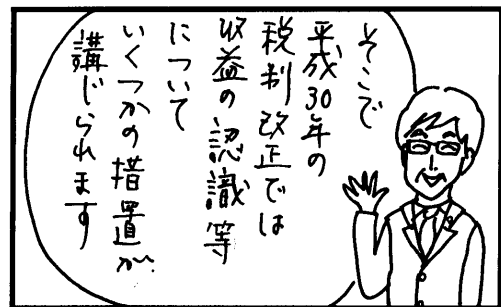 そこで
平成30年の
税制改正では
収益の認識等
について
いくつかの措置が
講じられます